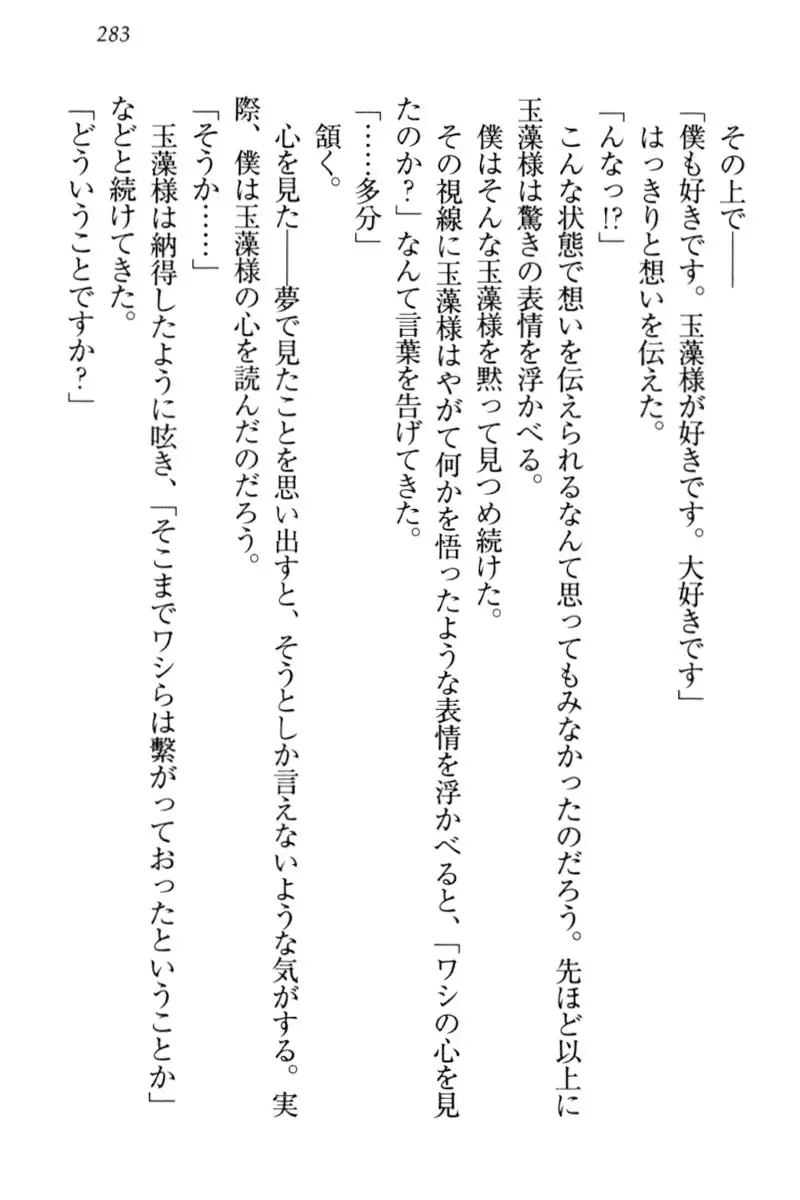 283
その上で――
「僕も好きです。玉藻様が好きです。大好きです」
はっきりと想いを伝えた。
「んなっ!?」
こんな状態で想いを伝えられるなんて思ってもみなかったのだろう。先ほど以上に
玉藻様は驚きの表情を浮かべる。
僕はそんな玉藻様を黙って見つめ続けた。
その視線に玉藻様はやがて何かを悟ったような表情を浮かべると、「ワシの心を見
たのか?」なんて言葉を告げてきた。
「……多分」
頷く。
心を見た――夢で見たことを思い出すと、そうとしか言えないような気がする。実
際、僕は玉藻様の心を読んだのだろう。
「そうか……」
玉藻様は納得したように呟き、「そこまでワシらは繫がっておったということか」
などと続けてきた。
「どういうことですか?」